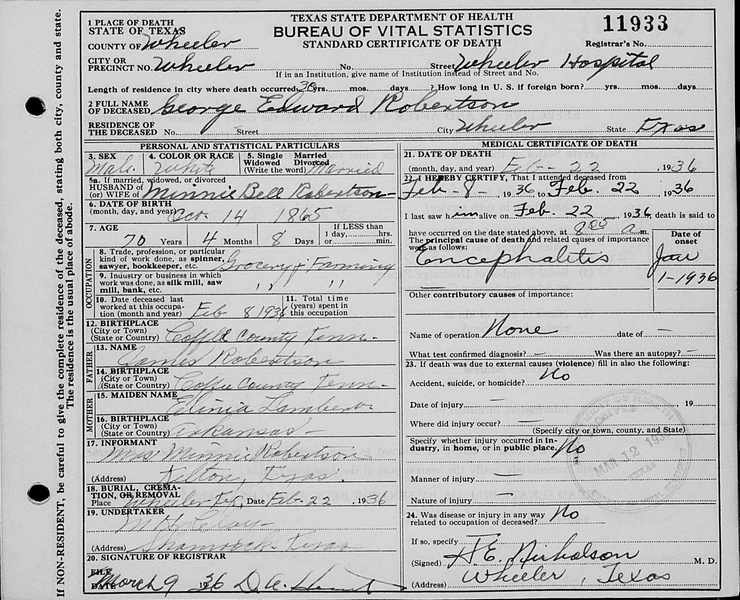 TEXAS STATE DEPARTMENT OF HEALTH
BUREAU OF VITAL STATISTICS
STANDARD CERTIFICATE OF DEATH
11933
Registrar's No.
1 PLACE OF DEATH
STATE OF TEXAS
COUNTY OF Wheeler
CITY OR PRECINCT NO. Wheeler No. Street Wheeler Hospital
If in an Institution, give name of Institution instead of Street and No.
Length of residence in city where death occurred 30 yrs. mos. days ? How long in U. S. if foreign born? yrs. mos. days
2 FULL NAME OF DECEASED George Edward Robertson
RESIDENCE OF THE DECEASED No. Street City Wheeler State Texas
PERSONAL AND STATISTICAL PARTICULARS
3. SEX Male
4. COLOR OR RACE White
5. Single Married Widowed Divorced (Write the word) Married
5a. If married, widowed, or divorced
HUSBAND OF (or) WIFE OF Minnie Bell Robertson
6. DATE OF BIRTH
(month, day, and year) Oct. 14 1865
7. AGE 70 Years 4 Months 8 Days If LESS than 1 day, hrs. or min.
OCCUPATION
8. Trade, profession, or particular kind of work done, as spinner, sawyer, bookkeeper, etc. Grocery & Farming
9. Industry or business in which work was done, as silk mill, saw mill, bank, etc. " "
10. Date deceased last worked at this occupation (month and year) Feb 8 1936
11. Total time (years) spent in this occupation
12. BIRTHPLACE
(City or Town)
(State or Country) Coffee County Tenn.
FATHER
13. NAME James Robertson
14. BIRTHPLACE
(City or Town)
(State or Country) Coffee County Tenn
MOTHER
15. MAIDEN NAME Lambert
16. BIRTHPLACE
(City or Town)
(State or Country) Arkansas
17. INFORMANT Mrs Minnie Robertson
(Address) Texas
18. BURIAL, CREMATION, OR REMOVAL
Place Wheeler Tex, Date Feb. 22 1936
19. UNDERTAKER
(Address) Shamrock Texas
20. SIGNATURE OF REGISTRAR
FILE DATE March 9 1936
MEDICAL CERTIFICATE OF DEATH
21. DATE OF DEATH
(month, day, and year) Feb - 22 1936
22. I HEREBY CERTIFY, That I attended deceased from
Feb - 8 - 1936 to Feb. 22 1936
I last saw him alive on Feb. 22 1936, death is said to
have occurred on the date stated above, at 8 00 a m.
The principal cause of death and related causes of importance were as follows:
Date of onset
Encephalitis Jan 1-1936
Other contributory causes of importance:
Name of operation None date of —
What test confirmed diagnosis? — Was there an autopsy? —
23. If death was due to external causes (violence) fill in also the following:
Accident, suicide, or homicide? No
Date of injury — 19
Where did injury occur? —
(Specify city or town, county, and State)
Specify whether injury occurred in industry, in home, or in public place. No
MAR 12 193
Manner of injury —
Nature of injury —
24. Was disease or injury in any way related to occupation of deceased? No
If so, specify
(Signed) H.E. Nicholson M. D.
(Address) Wheeler, Texas
IF NON-RESIDENT, be careful to give the complete residence of the deceased, stating both city, county and state.
The residence is the usual place of abode.